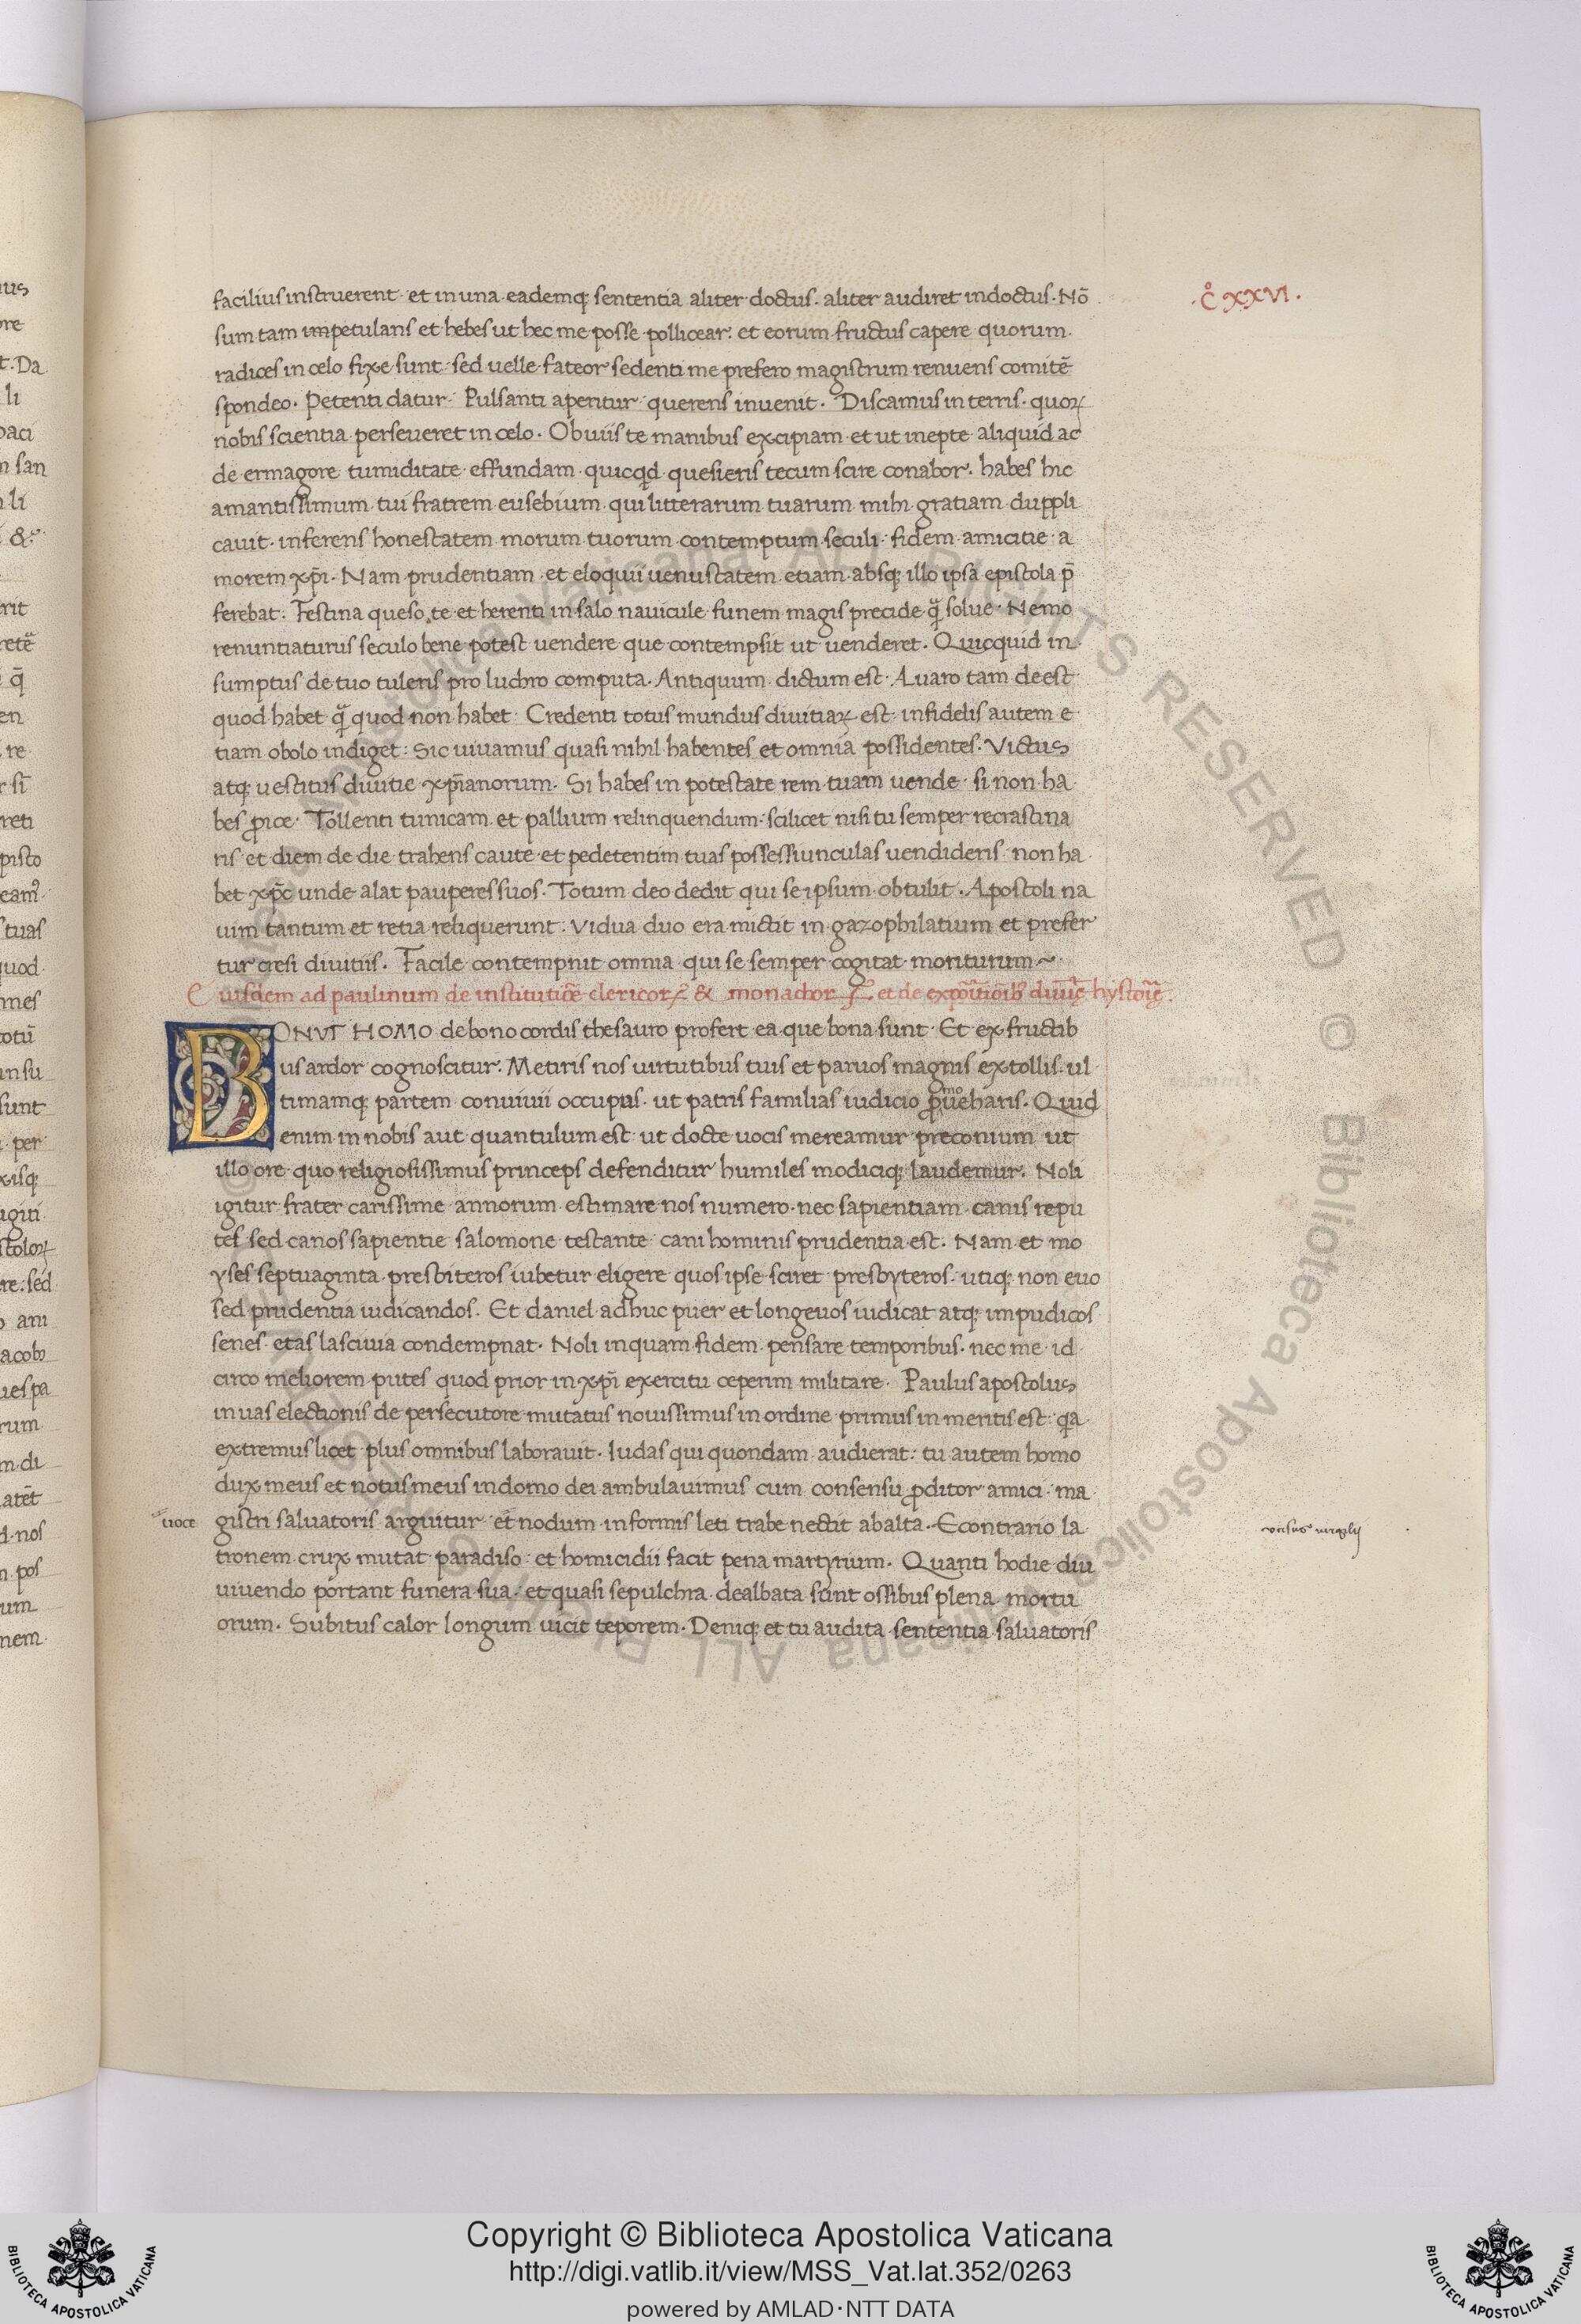 facilius instruerent· et in una eademq; sententia aliter doctus· aliter audiret indoctus· Nō
·C̊ XXVI·
sum tam impetulans et hebes ut hec me posse pollicear: et eorum fructus capere quorum
radices in celo fixe sunt· sed uelle fateor sedenti me prefero magistrum renuens comitē
spondeo· Petenti datur· Pulsanti aperitur querens inuenit· Discamus in terris· quoꝝ
nobis scientia perseueret in celo· Obuiis te manibus excipiam et ut inepte aliquid ac
de ermagore tumiditate effundam quicqd quesieris tecum scire conabor· habes hic
amantissimum tui fratrem eusebium qui litterarum tuarum mihi gratiam duppli
cauit· inferens honestatem morum tuorum contemptum seculi· fidem amicitie a
morem xp̄i· Nam prudentiam et eloquii uenustatem etiam absq; illo ipsa epistola p̄
ferebat: Festina queso te et herenti in salo nauicule funem magis precide q̄ solue· Nemo
renuntiaturus seculo bene potest uendere que contempsit ut uenderet· Quicquid in
sumptus de tuo tuleris pro luchro computa· Antiquum dictum est· Auaro tam deest
quod habet q̄ quod non habet· Credenti totus mundus diuitiaꝝ est: infidelis autem e
tiam obolo indiget: Sic uiuamus quasi nihil habentes et omnia possidentes· Victus
atq; uestitus diuitie xp̄ianorum· Si habes in potestate rem tuam uende· si non ha
bes ꝓice· Tollenti tunicam et pallium relinquendum· scilicet nisi tu semper recrastina
ris et diem de die trahens caute et pedetentim tuas possessiunculas uendideris non ha
bet xp̄c unde alat pauperes suos· Totum deo dedit qui se ipsum obtulit· Apostoli na
uim tantum et retia reliquerunt: Vidua duo era mictit in gazophilatium et prefer
tur cresi diuitiis· Facile contempnit omnia qui se semper cogitat moriturum~
Euisdem ad paulinum de institutiōe clericoꝝ & monachoꝝ et de expōitiōib; diuīę hystorīę·
BONUS HOMO de bono cordis thesauro profert ea que bona sunt· Et ex fructib
us ardor cognoscitur: Metiris nos uirtutibus tuis et paruos magnis extollis· ul
timamq; partem conuiuii occupas· ut patris familias iudicio ꝓueharis· Quid
enim in nobis aut quantulum est ut docte uocis mereamur preconium ut
illo ore quo religiosissimus princeps defenditur humiles modiciq; laudemur· Noli
igitur frater carissime annorum estimare nos numero· nec sapientiam canis repu
tes sed canos sapientie salomone testante cani hominis prudentia est· Nam et mo
yses septuaginta presbiteros iubetur eligere quos ipse sciret presbyteros· utiq; non euo
sed prudentia iudicandos· Et daniel adhuc puer et longeuos iudicat atq; impudicos
senes etas lasciuia condempnat· Noli inquam fidem pensare temporibus· nec me id
circo meliorem putes quod prior in xp̄i exercitu ceperim militare· Paulus apostolus
in uas electionis de persecutore mutatus nouissimus in ordine primus in meritis est· qa
extremus licet plus omnibus laborauit· Iudas qui quondam audierat: tu autem homo
dux meus et notus meus in domo dei ambulauimus cum consensu ꝓditor amici ma
uoce
gistri saluatoris arguitur et nodum informis leti trabe nectit ab alta· Econtrario la
uersus uirgilij
tronem crux mutat paradiso· et homicidii facit pena martyrium· Quanti hodie diu
uiuendo portant funera sua· et quasi sepulchra dealbata sunt ossibus plena mortu
orum· Subitus calor longum uicit teporem· Deniq; et tu audita sententia saluatoris
Copyright © Biblioteca Apostolica Vaticana
http://digi.vatlib.it/view/MSS_Vat.lat.352/0263
powered by AMLAD·NTT DATA
BIBLIOTECA APOSTOLICA VATICANA
BIBLIOTECA APOSTOLICA VATICANA